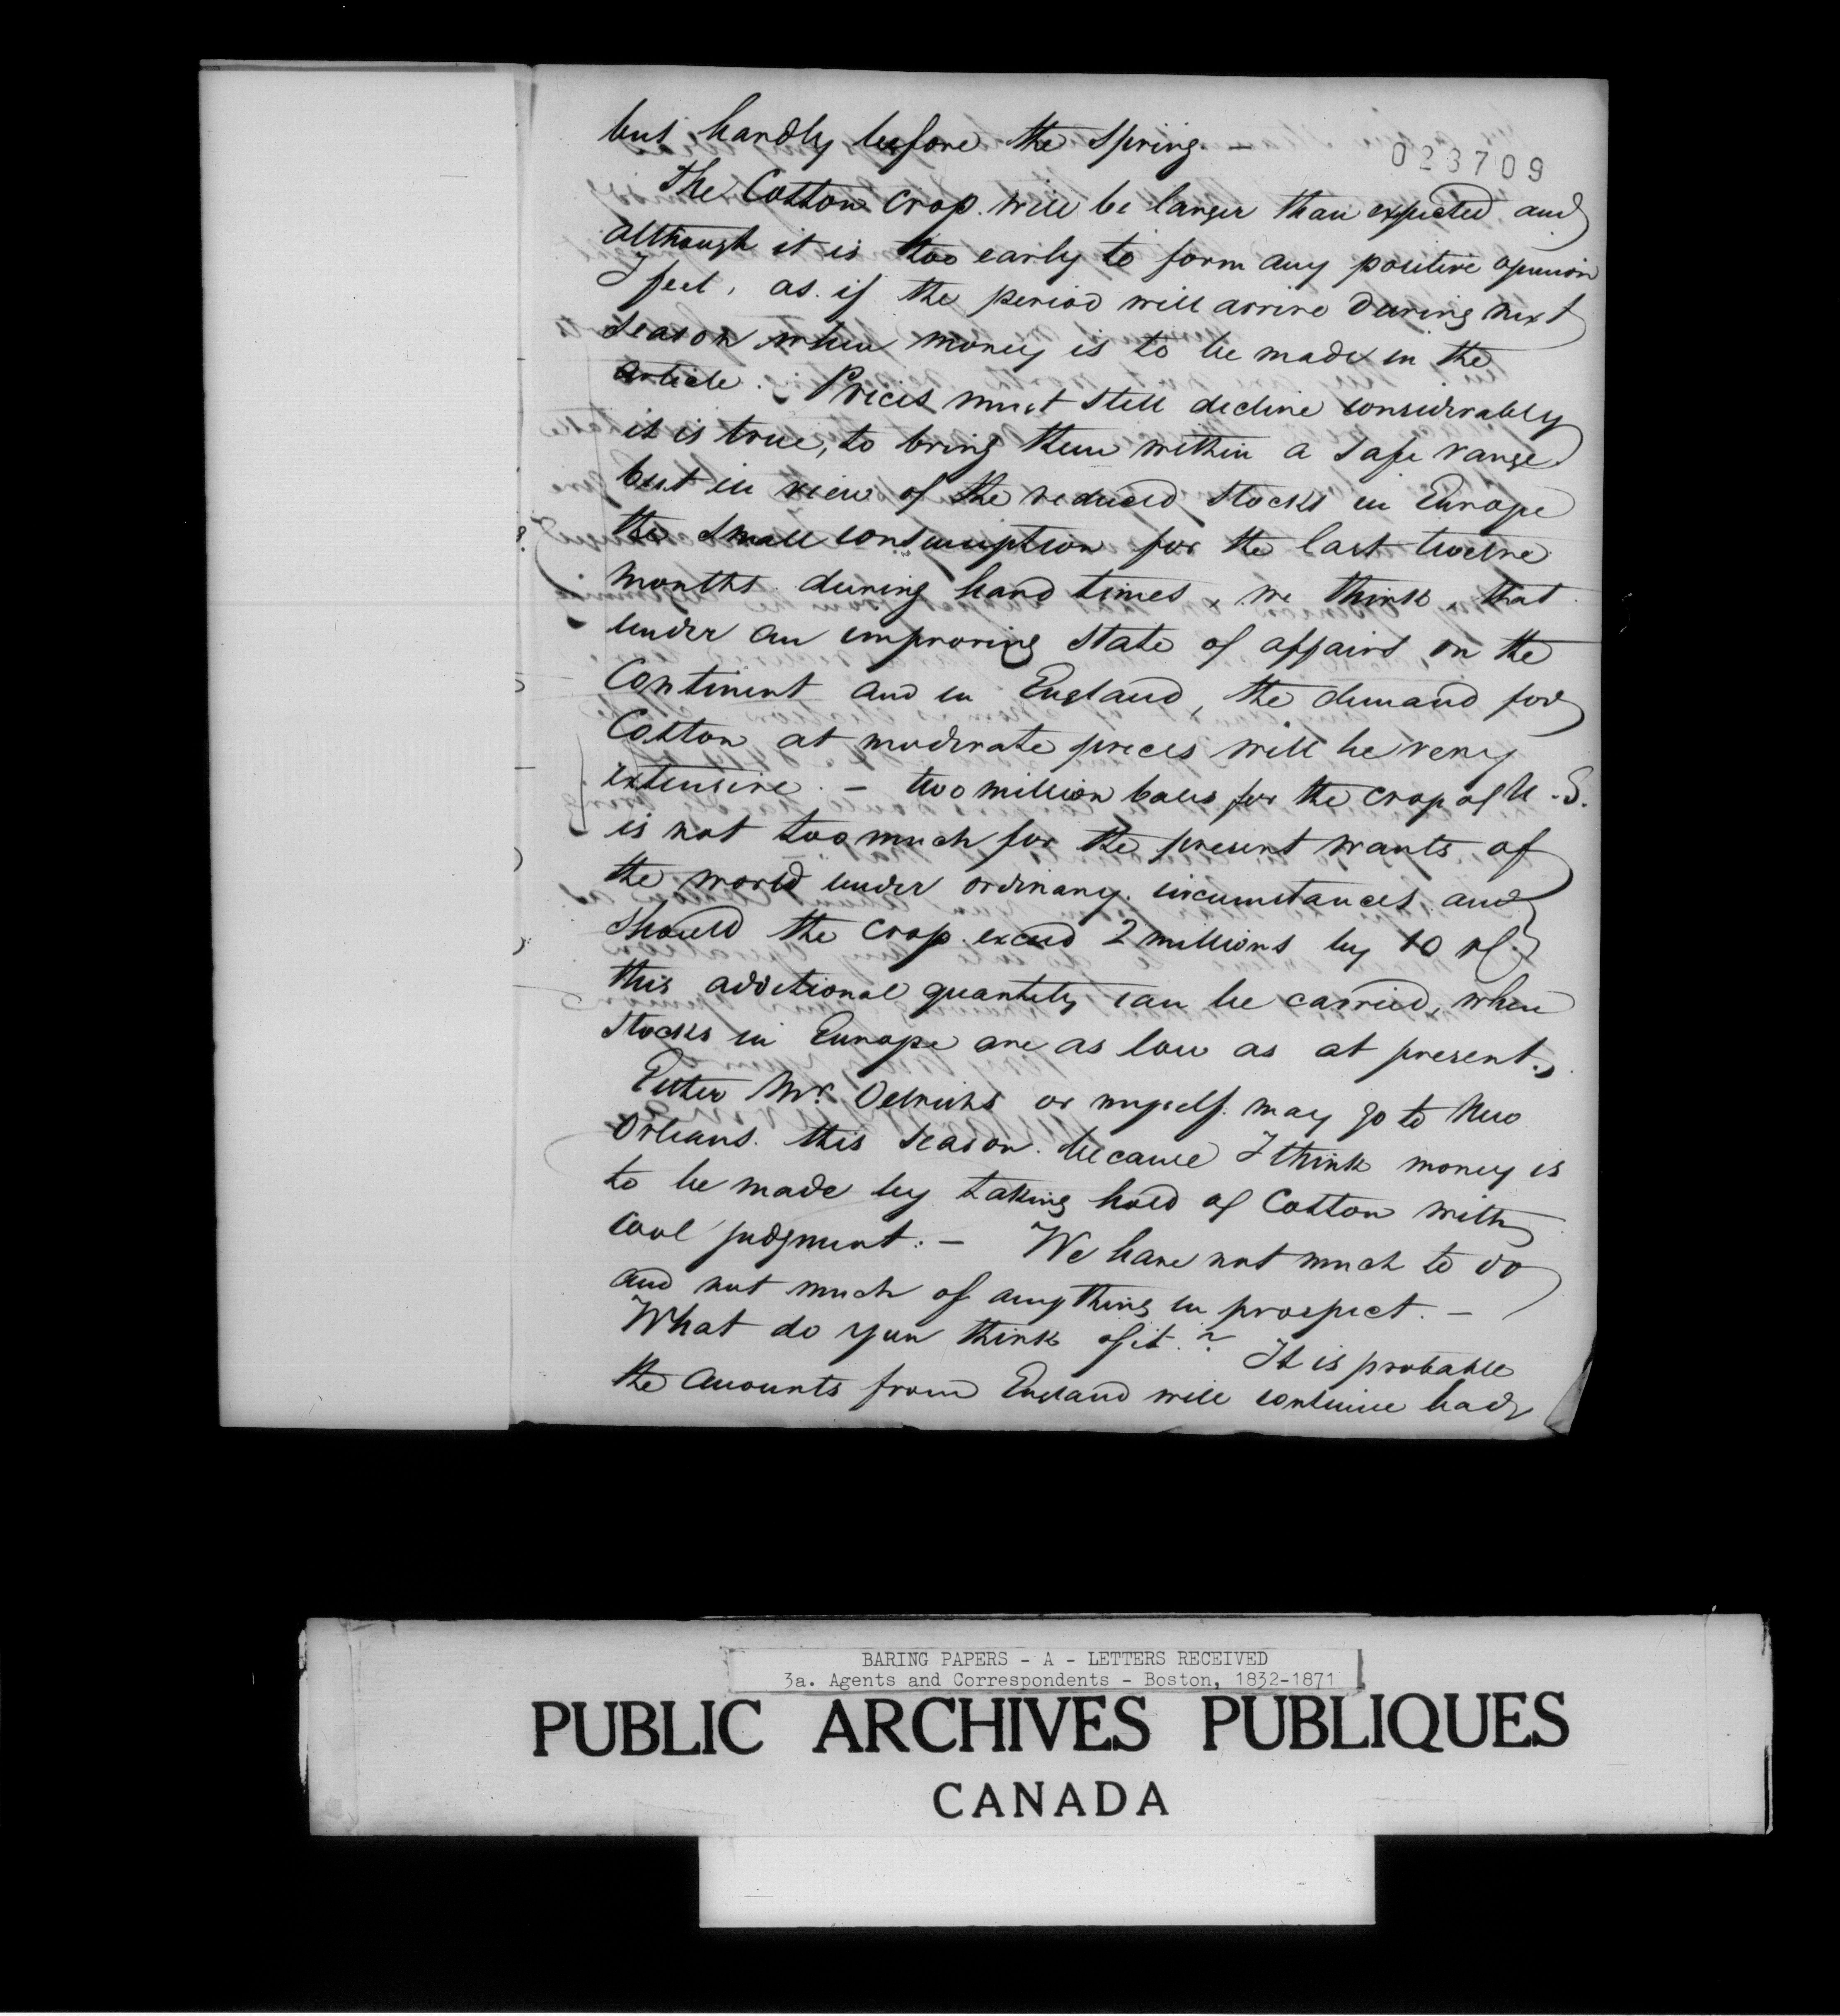 but hardly before the Spring. —
023709
The Cotton Crop will be larger than expected and
although it is too early to form any positive opinion
I feel, as if the period will arrive during next
season when money is to be made in the
article. Prices must still decline considerably
it is true, to bring them within a safe range
but in view of the reduced stocks in Europe
the small consumption for the last twelve
months during hard times, we think, that
under an improving state of affairs on the
Continent and in England, the demand for
Cotton at moderate prices will be very
extensive. — two million bales for the crop of U.S.
is not too much for the present wants of
the world under ordinary circumstances and
should the crop exceed 2 millions by 10
this additional quantity can be carried, when
stocks in Europe are as low as at present.
Either Mr. Oelrichs or myself may go to New
Orleans this season because I think money is
to be made by taking hold of Cotton with
cool judgment. — We have not much to do
and not much of anything in prospect. —
What do you think of it? It is probable
the accounts from England will continue bad
BARING PAPERS - A - LETTERS RECEIVED
3a. Agents and Correspondents - Boston, 1832-1871
PUBLIC ARCHIVES PUBLIQUES
CANADA